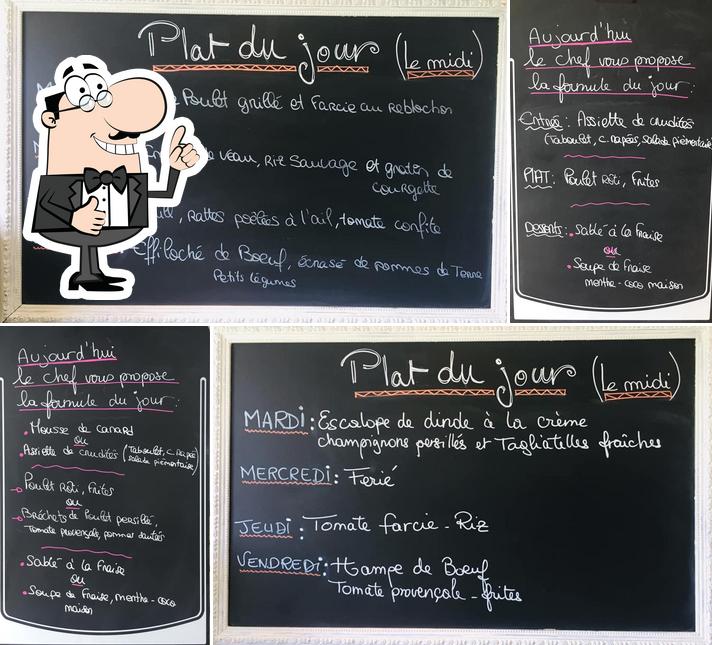 Plat du jour (le midi)
Poulet grillé et Farcie au reblochon
Veau, Riz Sauvage et gratin de
courgette
Rattes poêlées à l'ail, tomate confite
Effiloché de Boeuf, écrasé de pommes de Terre
Petits légumes
Aujourd'hui
le chef vous propose
la formule du jour :
Entrée : Assiette de crudités
(Taboulet, c. Rapées, salade piémontaise
PlAT : Poulet Rôti, Frites
Desserts : • Sablé à la Fraise
ou
• Soupe de Fraise
menthe - coco maison
Aujourd'hui
le chef vous propose
la formule du jour :
• Mousse de canard
ou
• Assiette de crudités (Taboulet, c. Rapée
salade piémontaise)
Poulet Rôti, Frites
ou
Brochets de Poulet persillé,
Tomate provençale, pommes sautés
• Sablé à la Fraise
ou
• Soupe de Fraise, menthe - coco
maison
Plat du jour (le midi)
MARDi : Escalope de dinde à la crème
champignons persillés et Tagliatelles fraîches
MERCREDi : Ferié
JEUDi : Tomate farcie - Riz
VENDREDi : Hampe de Boeuf
Tomate provençale - frites